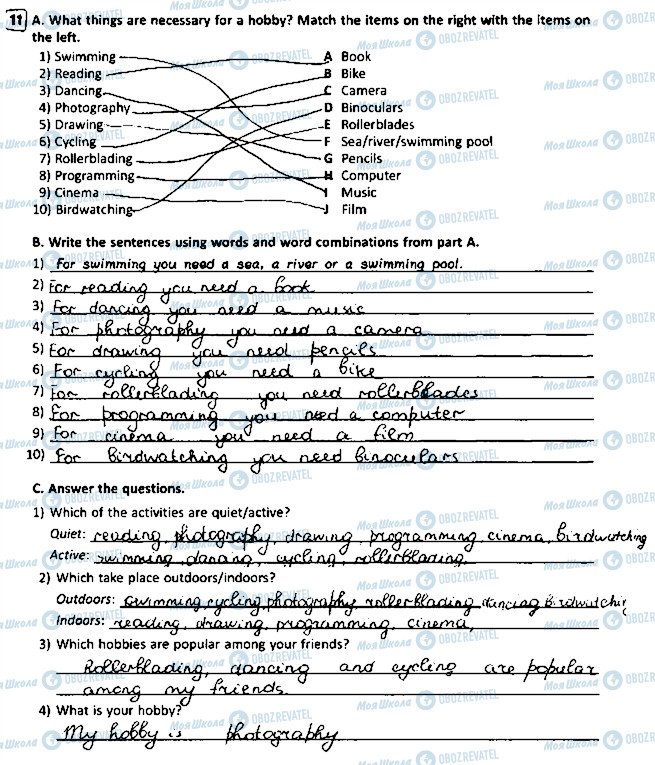 11 A. What things are necessary for a hobby? Match the items on the right with the items on
the left.
1) Swimming A Book
2) Reading B Bike
3) Dancing C Camera
4) Photography D Binoculars
5) Drawing E Rollerblades
6) Cycling F Sea/river/swimming pool
7) Rollerblading G Pencils
8) Programming H Computer
9) Cinema I Music
10) Birdwatching J Film
B. Write the sentences using words and word combinations from part A.
1) For swimming you need a sea, a river or a swimming pool.
2) For reading you need a book
3) For dancing you need a music
4) For photography you need a camera
5) For drawing you need pencils
6) For cycling you need a bike
7) For rollerblading you need rollerblades
8) For programming you need a computer
9) For cinema you need a film
10) For birdwatching you need binoculars
C. Answer the questions.
1) Which of the activities are quiet/active?
Quiet: reading, photography, drawing, programming, cinema, birdwatching
Active: swimming, dancing, cycling, rollerblading
2) Which take place outdoors/indoors?
Outdoors: swimming, cycling, photography rollerblading dancing Birdwatching
Indoors: reading, drawing, programming, cinema,
3) Which hobbies are popular among your friends?
Rollerblading, dancing and cycling are popular
among my friends.
4) What is your hobby?
My hobby is photography
Моя Школа OBOZREVATEL